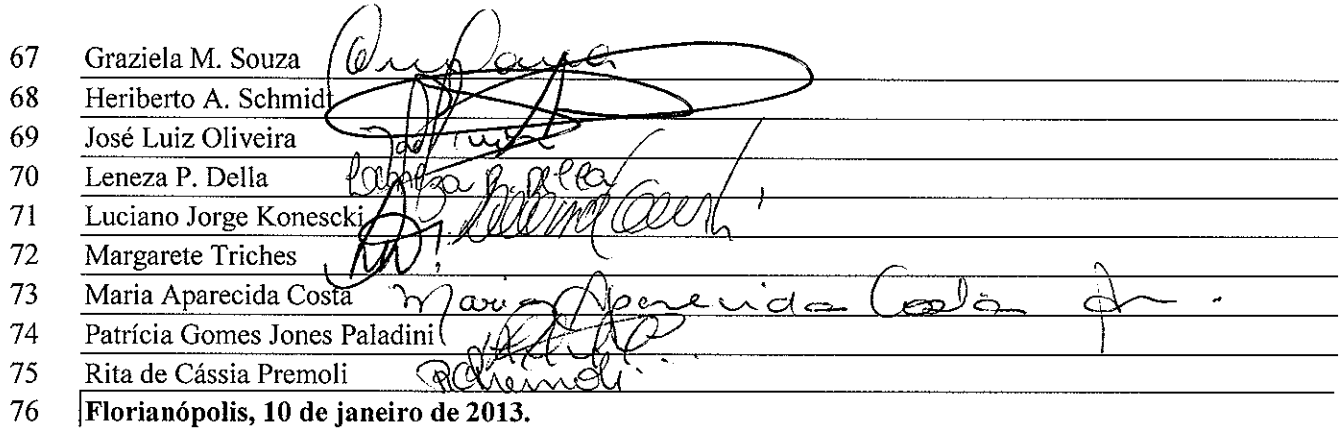 67 Graziela M. Souza
68 Heriberto A. Schmidt
69 José Luiz Oliveira
70 Leneza P. Della
71 Luciano Jorge Konescki
72 Margarete Triches
73 Maria Aparecida Costa Maria Aparecida Costa
74 Patrícia Gomes Jones Paladini
75 Rita de Cássia Premoli RPremoli
76 Florianópolis, 10 de janeiro de 2013.